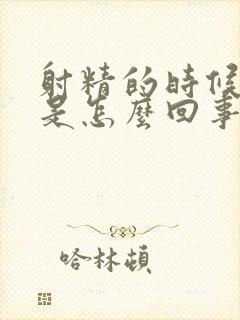 射精的时候
是怎麼回事
哈林顿